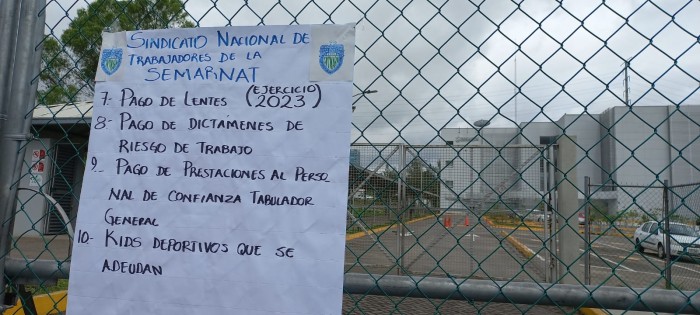 SINDICATO NACIONAL DE
TRABAJADORES DE LA
SEMARNAT
7.- PAGO DE LENTES (EJERCICIO 2023)
8- PAGO DE DICTÁMENES DE
RIESGO DE TRABAJO
9- PAGO DE PRESTACIONES AL PERSO
NAL DE CONFIANZA TABULADOR
GENERAL
10.- KIDS DEPORTIVOS QUE SE
ADEUDAN